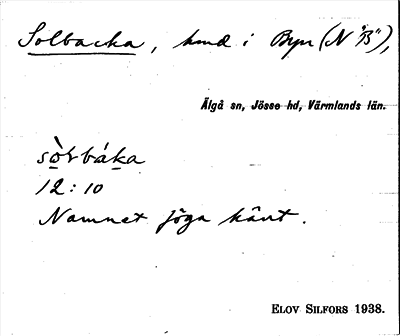 Solbacka, hmd i Byn (N "B"),
Älgå sn, Jösse hd, Värmlands län.
sò̱ɽbáka̱
12:10
Namnet föga känt.
ELOV SILFORS 1938.